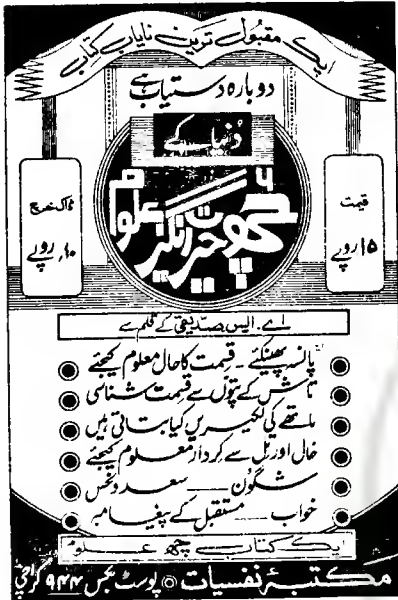 ایک مقبول ترین نایاب کتاب
دوبارہ دستیاب ہے
دُنیا کے
۶
چھ حیرت انگیز علوم
قیمت
۱۵ روپے
ڈاک خرچ
۱۰ روپے
اے۔ ایس صدیقی کے قلم سے
پانسہ پھینکئے - قسمت کا حال معلوم کیجئے
تاش کے پتوں سے قسمت شناسی
ماتھے کی لکیریں کیا بتاتی ہیں
خال اور تل سے کردار معلوم کیجئے
شگون — سعد و نحس
خواب — مستقبل کے پیغامبر
ایک کتاب چھ علوم
مکتبۂ نفسیات ◉ پوسٹ بکس ۹۴۴ کراچی